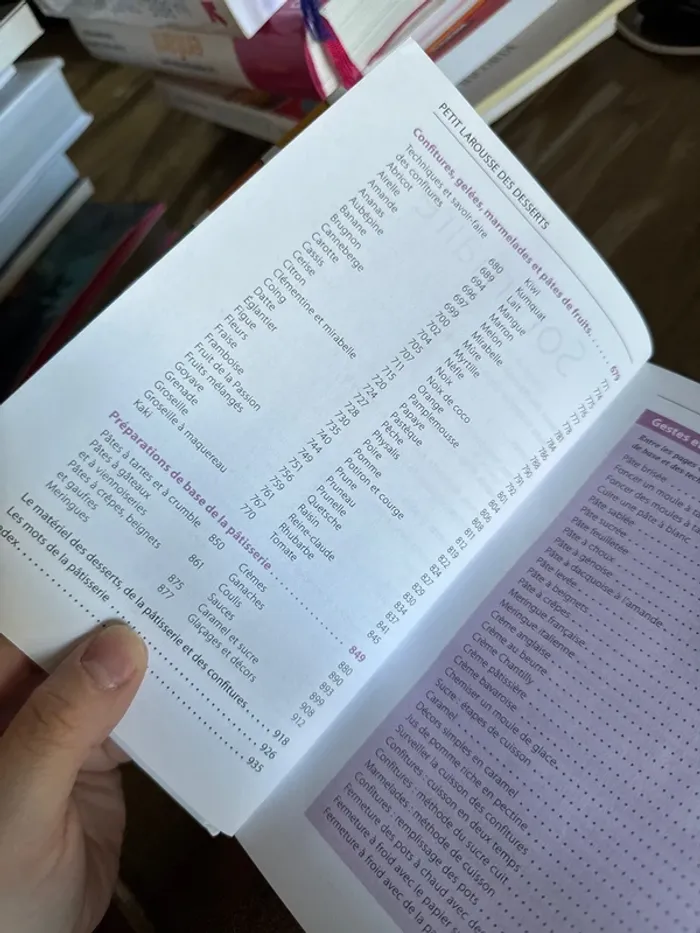 PETIT LAROUSSE DES DESSERTS
Confitures, gelées, marmelades et pâtes de fruits ...... 679
Techniques et savoir-faire
des confitures 680
Abricot 689
Airelle 694
Amande 696
Ananas 697
Aubépine 699
Banane 700
Brugnon 702
Canneberge 704
Carotte 705
Cassis 707
Cerise 711
Citron 715
Clémentine et mirabelle 720
Coing 724
Datte 727
Églantier 728
Figue 730
Fleurs 735
Fraise 740
Framboise 744
Fruit de la Passion 749
Fruits mélangés 751
Goyave 756
Grenade 759
Groseille 761
Groseille à maquereau 767
Kaki 770
Kiwi 771
Kumquat 774
Lait 775
Mangue
Marron
Melon
Mirabelle
Mûre
Myrtille
Nèfle
Noix
Noix de coco
Orange
Pamplemousse
Papaye
Pastèque
Pêche
Physalis 811
Poire 812
Pomme 819
Potiron et courge 822
Prune 824
Pruneau 827
Prunelle 829
Quetsche 830
Raisin 834
Reine-claude 837
Rhubarbe 841
Tomate 845
Préparations de base de la pâtisserie .......... 849
Pâtes à tartes et à crumble 850
Pâtes à gâteaux
et à viennoiseries 861
Pâtes à crêpes, beignets
et gaufres 875
Meringues 877
Crèmes 880
Ganaches 890
Coulis 893
Sauces 899
Caramel et sucre 908
Glaçages et décors 912
Le matériel des desserts, de la pâtisserie et des confitures .... 918
Les mots de la pâtisserie .......... 926
ndex .......... 935
Gestes e
Entre les pages
de base et des
Pâte brisée
Foncer un moule
Foncer des moules à
Cuire une pâte à blanc
Pâte sablée
Pâte sucrée
Pâte feuilletée
Pâte à choux
Pâte à génoise
Pâte à dacquoise à l'amande
Pâte levée
Pâte à beignets
Pâte à crêpes
Meringue française
Meringue italienne
Crème anglaise
Crème au beurre
Crème Chantilly
Crème pâtissière
Crème bavaroise
Chemiser un moule de glace
Sucre : étapes de cuisson
Caramel
Décors simples en caramel
Jus de pomme riche en pectine
Surveiller la cuisson des confitures
Confitures : cuisson en deux temps
Confitures : méthode du sucre cuit
Marmelades : méthode de cuisson
Confitures : remplissage des pots
Fermeture des pots à chaud avec de
Fermeture à froid avec le papier s
Fermeture à froid avec de la p